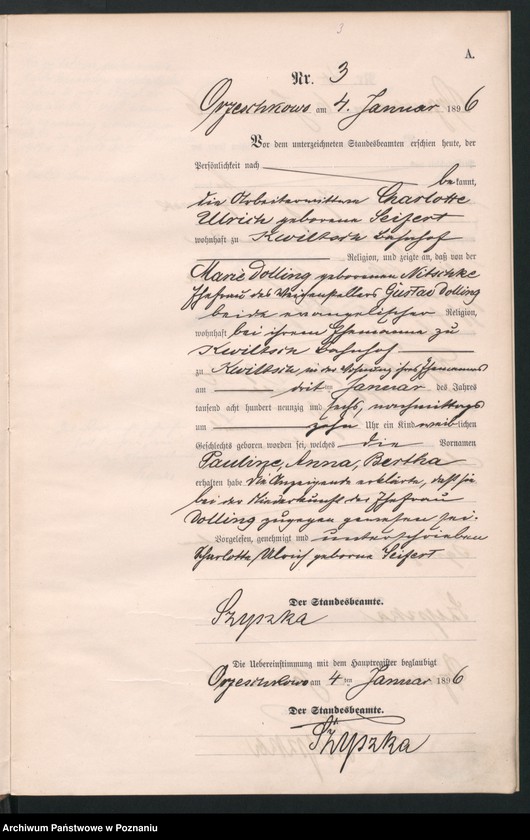 3
A.
Nr. 3
Orzeschkowo am 4. Januar 1896
Vor dem unterzeichneten Standesbeamten erschien heute, der
Persönlichkeit nach bekannt,
die Arbeiterwittwe Charlotte
Ulrich geborene Seifert
wohnhaft zu Kwiltsch Bahnhof
Religion, und zeigte an, daß von der
Marie Dolling geborenen Nitschke
Ehefrau des Weichenstellers Gustav Dolling
beide evangelischer Religion,
wohnhaft bei ihrem Ehemanne zu
Kwiltsch Bahnhof
zu Kwiltsch, in der Wohnung ihres Ehemannes
am dritten Januar des Jahres
tausend acht hundert neunzig und sechs, nachmittags
um zehn Uhr ein Kind weiblichen
Geschlechts geboren worden sei, welches die Vornamen
Pauline, Anna, Bertha
erhalten habe. Die Anzeigende erklärte, daß sie
bei der Niederkunft der Ehefrau
Dolling zugegen gewesen sei.
Vorgelesen, genehmigt und unterschrieben
Charlotte Ulrich geborne Seifert
Der Standesbeamte.
Szypzka
Die Uebereinstimmung mit dem Hauptregister beglaubigt
Orzeschkowo am 4ten Januar 1896
Der Standesbeamte.
Szypzka
Archiwum Państwowe w Poznaniu